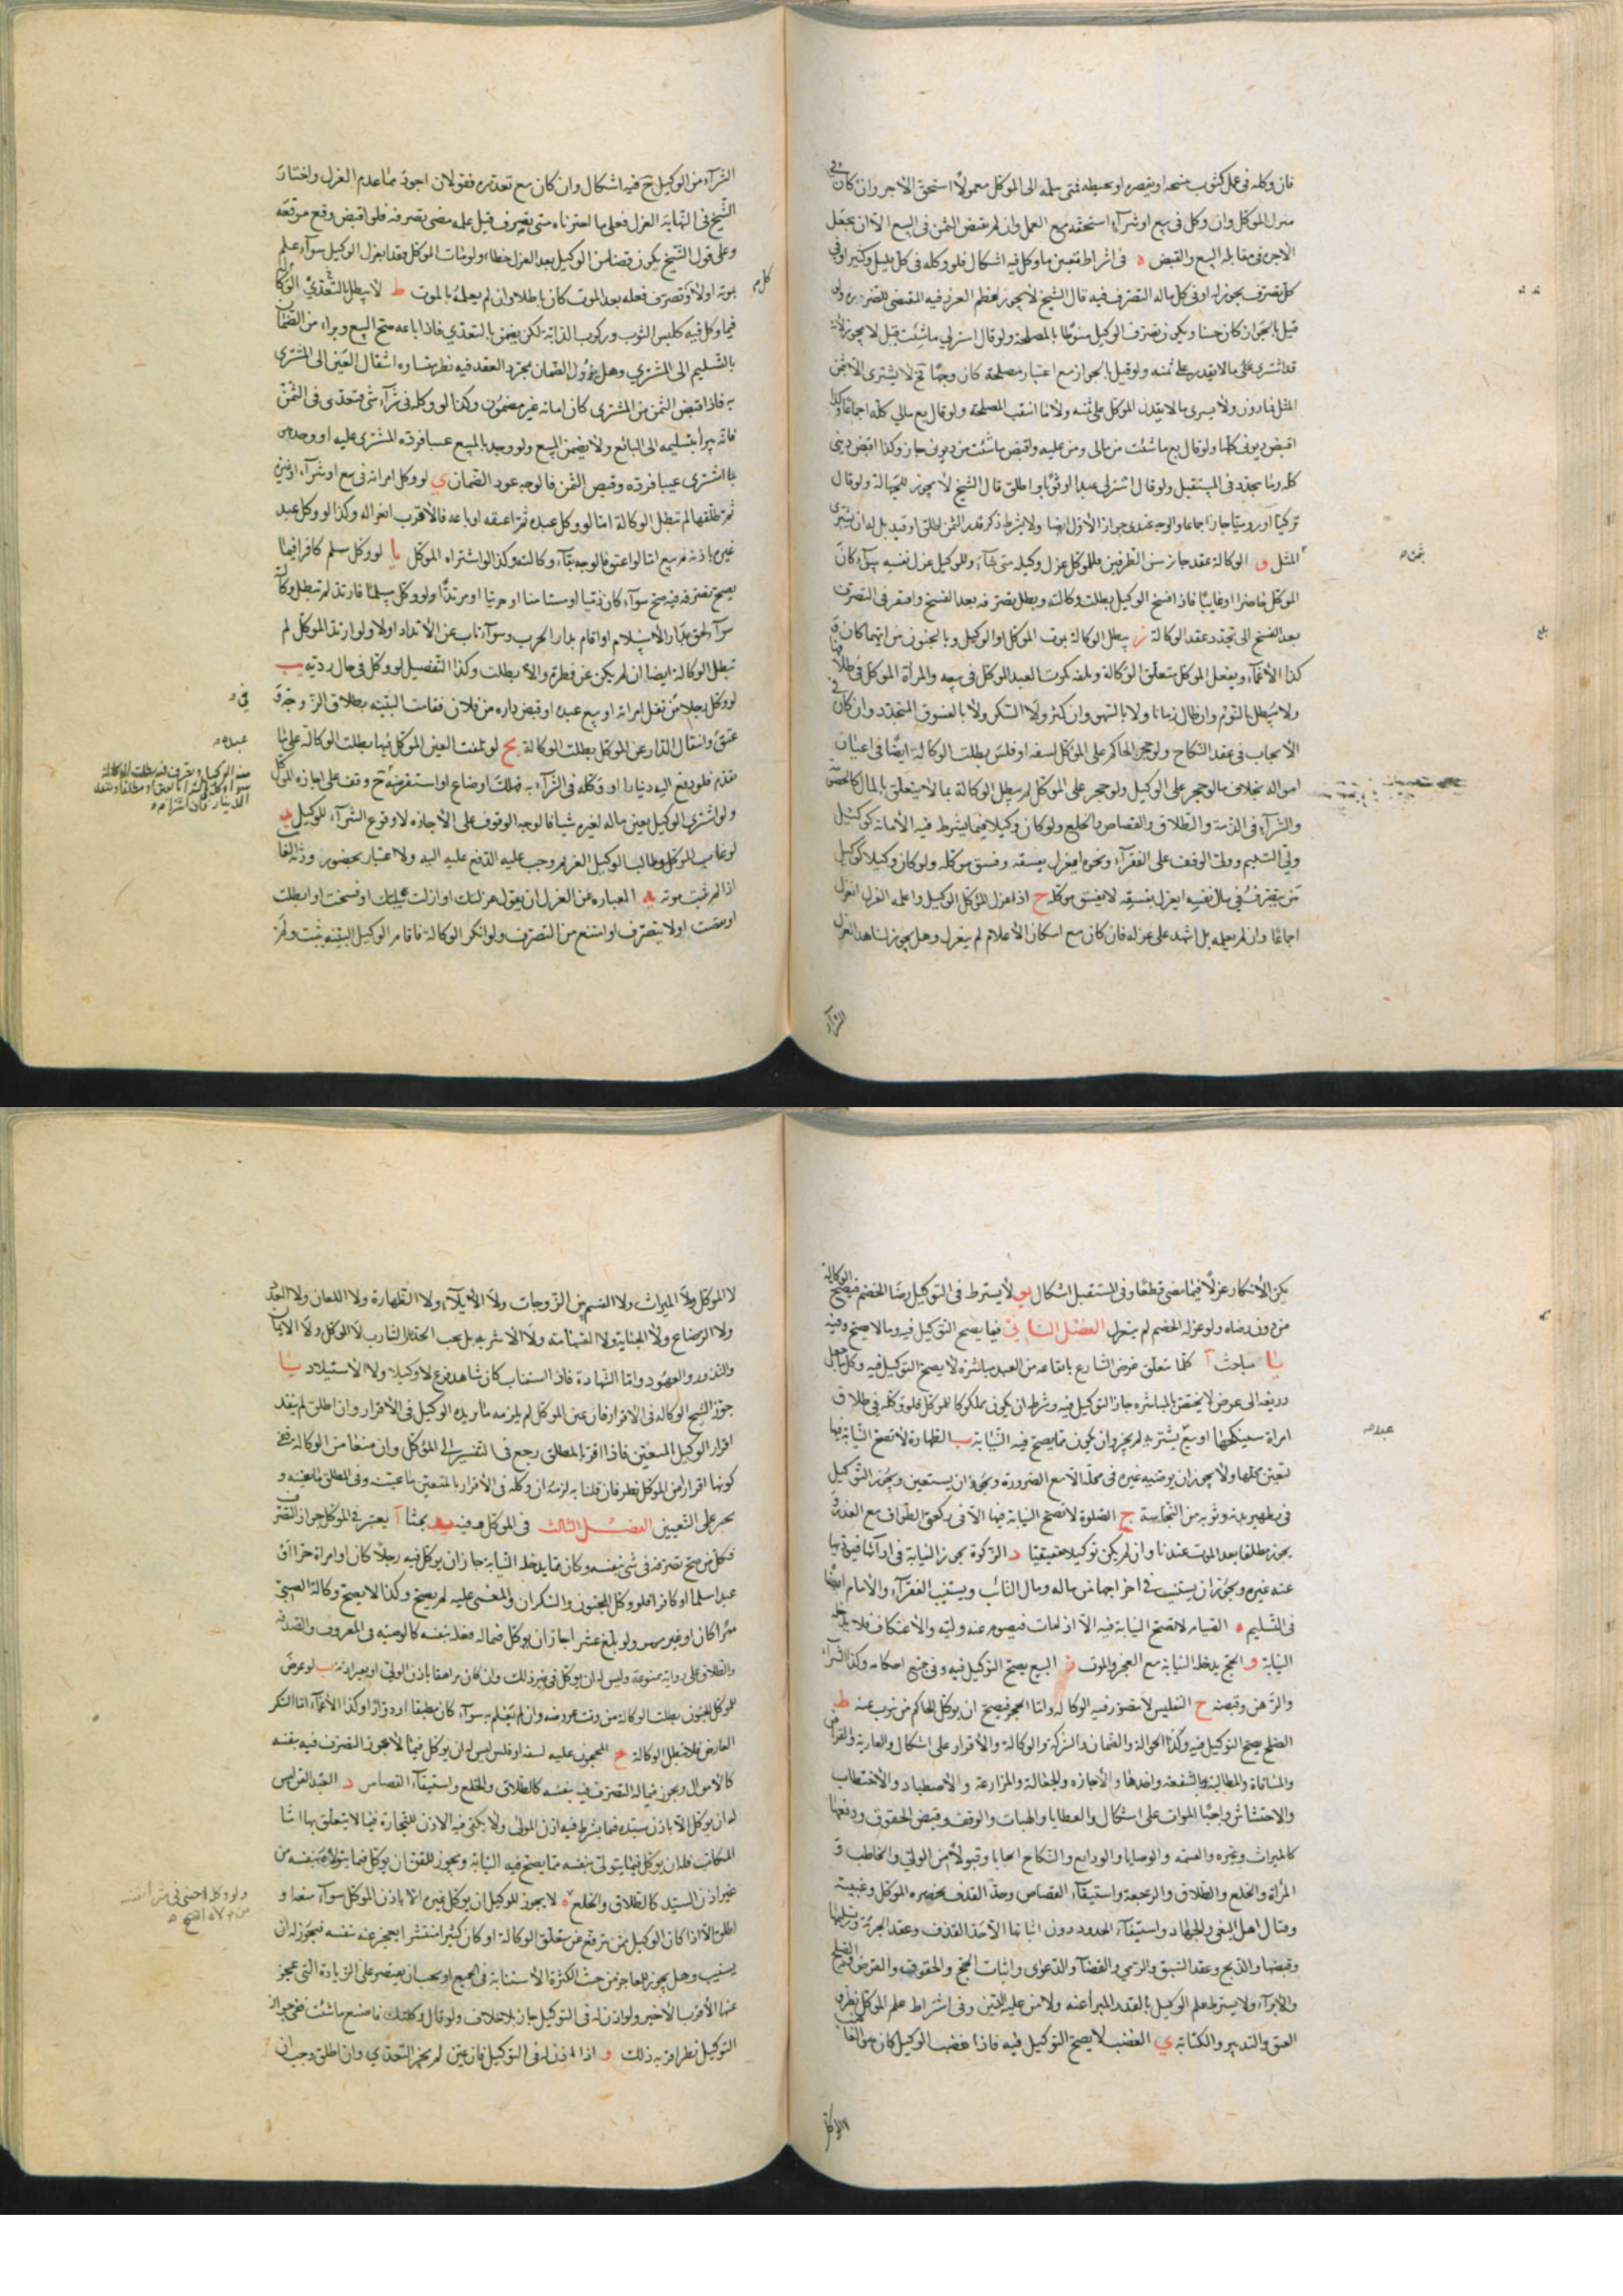 فان وكله فى عمل كثوب ينسجه او يقصره او يخيطه فمتى سلمه الى الموكل معمولاً استحق الأجر وان كان فى
منزل الموكل وان وكل فى بيع او شراء استحقه مع العمل وان لم يقبض الثمن فى البيع الا ان يجعل
الأجر فى مقابلة البيع والقبض ه فى اشراط تعيين ما وكل فيه اشكال فلو وكله فى كل قليل وكثير او فى
كل تصرف يجوز له او فى كل ماله التصرف فيه قال الشيخ لا يجوز لعظم الغرر فيه المقتضى للضرر ولو
قيل بالجواز كان حسنا ويكون تصرف الوكيل منوطا بالمصلحة ولو قال اشتر لى ما شئت قيل لا يجوز لانه
قد يشترى على ما لا يقدر على ثمنه ولو قيل بالجواز مع اعتبار مصلحة كان وجها فح لا يشترى الا بثمن
المثل فادون ولا يشرى ما لا يقدر الموكل على ثمنه ولا ما انتفت المصلحة ولو قال بع مالى كله اجماعا وكذا
اقبض ديونى كلها ولو قال بع ما شئت من مالى ومن عليه واقبض ما شئت من ديونى جاز وكذا اقبض دينى
كله وما يتجدد فى المستقبل ولو قال اشتر لى عبدا او ثوبا واطلق قال الشيخ لا يجوز للجهالة ولو قال
تركيا او روميا جاز اجماعا والوجه عندى جواز الأول ايضا ولا يشرط ذكر قدر الثمن اطلق او قيد بل له ان يشترى
المثل و الوكالة عقد جايز من الطرفين فللموكل عزل وكيله متى شاء وللوكيل عزل نفسه سواء كان
الموكل حاضرا او غايبا فاذا افسخ الوكيل بطلت وكالته وبطل تصرفه بعد الفسخ وافتقر فى التصرف
بعد الفسخ الى تجدد عقد الوكالة ز يبطل الوكالة بموت الموكل او الوكيل وبالجنون من ايهما كان و
كذا الأغماء وبفعل الموكل متعلق الوكالة وبتلفه كموت العبد الموكل فى بيعه والمرأة الموكل فى طلاقها
ولا يبطل بالنوم وان طال زمانا ولا بالسهو وان كثر ولا السكر ولا بالفسوق المتجدد وان كان فى
الأيجاب فى عقد النكاح ولو حجر الحاكم على الموكل لسفه او فلس بطلت الوكالة ايضا فى اعيان
امواله بخلاف ما لو حجر على الوكيل ولو حجر على الموكل لم يبطل الوكالة بما لا يتعلق بالمال كالخصومة
والشراء فى الذمة والطلاق والقصاص والخلع ولو كان وكيلا فيما يشرط فيه الأمانة كوكيل
ولى اليتيم وولى الوقف على الفقراء ونحوه انعزل بفسقه وفسق موكله ولو كان وكيلا لوكيل
من يتصرف فى مال نفسه انعزل بفسقه لا بفسق موكله ح اذا عزل الموكل الوكيل واعلمه العزل انعزل
اجماعا وان لم يعلمه بل اشهد على عزله فان كان مع امكان الأعلام لم ينعزل وهل يجوز لشاهد العزل
الشراء
الشراء من الوكيل ح فيه اشكال وان كان مع تعذره فقولان اجودهما عدم العزل واختار
الشيخ فى النهاية العزل فعلى ما اخترناه متى تصرف قبل علمه مضى تصرفه فلو اقبض وقع موقعه
وعلى قول الشيخ يكون ضامنا الوكيل بعد العزل خطاء ولو مات الموكل فقد انعزل الوكيل سواء علم
بموته اولا ولو تصرف فعله بعد الموت كان باطلا وان لم يعلمه بالموت ط لا يبطل بالتعدى الوكالة
فيما وكل فيه كلبس الثوب وركوب الدابة لكن يضمن بالتعدي فاذا باعه صح البيع وبراء من الضمان
بالتسليم الى المشتري وهل يزول الضمان بمجرد العقد فيه نظر ينشاء من انتقال العين الى المشترى
به فاذا قبض الثمن من المشترى كان امانة غير مضمون وكذا لو وكله فى شراء شئ فتعدى فى الثمن
فانه يبرأ بتسليمه الى البائع ولا يضمن المبيع ولو وجد بالمبيع عيبا فرده المشترى عليه او وجد هو
بما اشترى عيبا فرده وقبض الثمن فالوجه عود الضمان ي لو وكل امراته فى بيع او شراء او غيره
ثم طلقها لم تبطل الوكالة اما لو وكل عبده ثم اعتقه او باعه فالأقرب انعزاله وكذا لو وكل عبد
غيره باذنه ثم بيع اما لو اعتق فالوجه بقاء وكالته وكذا لو اشتراه الموكل يا لو وكل مسلم كافرا فيما
يصح تصرفه فيه صح سواء كان ذميا او مستامنا او حربيا او مرتدا ولو وكل مسلما فارتد لم تبطل وكالته
سواء لحق بدار الأسلام او اقام بدار الحرب وسواء تاب عن الأرتداد اولا ولو ارتد الموكل لم
تبطل الوكالة ايضا ان لم يكن عن فطرة والا بطلت وكذا التفصيل لو وكل فى حال ردته يب
لو وكل رجلا من نقل امراته او بيع عبده او قبض داره من فلان فقامت البينة بطلاق الزوجة و
عتق وانتقال الدار عن الموكل بطلت الوكالة يج لو تلفت العين الموكل فيها بطلت الوكالة على ما
تقدم فلو دفع اليه دينارا او وكله فى الشراء به فهلك او ضاع او استقرضه ح وقف على اجازه الموكل
ولو اشترى الوكيل بعين ماله لغيره شيا فالوجه الوقوف على الأجازه لا وقوع الشراء للوكيل يد
لو غاب الموكل وطالب الوكيل الغريم وجب عليه الدفع عليه اليه ولا اعتبار بحضور ورثه الغا
اذا لم يثبت موته يه العبارة عن العزل ان يقول عزلتك او ازلت وكيلتك او فسخت او ابطلت
او نقضت اولا يتصرف او امتنع من التصرف ولو انكر الوكالة فاقام الوكيل البينه بثبت ولم
يكن الأنكار عزلا فيما مضى قطعا وفى المستقبل اشكال يو لا يشترط فى التوكيل رضا الخصم فيصح الوكالة
من دون رضاه ولو عزله الخصم لم ينعزل الفصل الثانى فيما يصح التوكيل فيه وما لا يصح وفيه
يا مباحث آ كلما تعلق غرض الشارع بايقاعه من العبد مباشرة لا يصح التوكيل فيه وكل ما جعل
ذريعة الى غرض لا يختص بالمباشره جاز التوكيل فيه وشرط ان يكون مملوكا للموكل فلو وكله فى طلاق
امراة سينكحها او بيع ما يشتريه لم يجز وان يكون مما يصح فيه النيابة ب الطهارة لا تصح النيابة فيها
لتعين محلها ولا يجوز ان يوضيه غيره فى محلها الا مع الضرورة ويجوز ان يستعين ويجوز التوكيل
فى تطهير بدنه وثوبه من النجاسة ج الصلوة لا تصح النيابة فيها الا فى ركعتى الطواف مع العذر و
يجوز مطلقا بعد الموت عندنا وان لم يكن توكيلا حقيقيا د الزكوة يجوز النيابة فى ادائها فينوبها
عنه غيره ويجوز ان يستنيب فى اخراجها من ماله ومال النائب ويستنيب الفقراء والأمام ايضا
فى التسليم ه الصيام لا تصح النيابة فيه الا اذا مات فيصوم عنه وليه والأعتكاف فلا يدخله
النيابة و الحج يدخله النيابة مع العجز والموت ز البيع يصح التوكيل فيه وفى جميع احكامه وكذا الشراء
والرهن وقبضه ح التفليس لا يتصور فيه الوكالة واما الحجر فيصح ان يوكل الحاكم من ينوب عنه ط
الصلح يصح التوكيل فيه وكذا الحوالة والضمان والشركة والوكالة والأقرار على اشكال والعارية والقراض
والمساقاة والمطالبة بالشفعة واخذها والأجازه والجعالة والمزارعة والأصطياد والأختطاب
والاحتشاش واحيا الموات على اشكال والعطايا والهبات والوقف وقبض الحقوق ودفعها
كالميراث وغيره والقسمه والوصايا والودايع والنكاح ايجابا وقبولا من الولي والخاطب و
المرأة والخلع والطلاق والرجعة واستيفاء القصاص وحد القذف بحضره الموكل وغيبته
وقتال اهل البغى والجهاد واستيفاء الحدود دون اثباتها الا حد القذف وعقد الجزية وتسليمها
وقبضها والذبح وعقد السبق والرمي والقضاء والدعوى واثبات الحجج والحقوق والقرض والصلح
والابراء ولا يشترط علم الوكيل بالقدر المبرأ عنه ولا من عليه الدين وفى اشراط علم الموكل نظر و
العتق والتدبير والكتابة ي الغصب لا يصح التوكيل فيه فاذا غصب الوكيل كان هو الغاصب
لا الموكل
لا الموكل ولا الميراث ولا القسم بين الزوجات ولا الأيلاء ولا الظهارة ولا اللعان ولا العدة
ولا الرضاع ولا الجناية ولا القسامة ولا الأشربه بل يجب الحد على الشارب لا الموكل ولا الأيمان
والنذور والعهود واما الشهادة فاذا استناب كان شاهد فرع لا وكيلا ولا الأستيلاد يا
جوز الشيخ الوكاله فى الاقرار فان عين الموكل لم يلزمه ما زيده الوكيل فى الأقرار وان اطلق لم ينفذ
اقرار الوكيل المتعين فاذا اقر بالمطلق رجع فى التفسير الى الموكل وان منعنا من الوكالة ففى
كونها اقرارا من الموكل نظر فان قلنا به لزمه ان وكله فى الأقرار بالمتعين ما عينه وفى المطلق ما يعينه و
يجبر على التعيين الفصل الثالث فى الموكل وفيه يد بحثا آ يعتبر فى الموكل جواز التصرف
فكل من صح تصرفه فى شئ بنفسه وكان مما يدخله النيابة جاز ان يوكل فيه رجلا كان او امراة حرا او
عبدا مسلما او كافرا فلو وكل المجنون والسكران والمغشى عليه لم يصح وكذا لا يصح وكالة الصبي
مميزا كان او غير مميز ولو بلغ عشرا جاز ان يوكل فيما له فعله بنفسه كالوصيه فى المعروف والصدقه
والطلاق على رواية ممنوعة وليس له ان يوكل فى غير ذلك وان كان مراهقا باذن الولي او بغير اذنه ب لو عرض
للموكل الجنون بطلت الوكالة من وقت عروضه وان لم يعلم به سواء كان مطبقا او دوارا وكذا الأغماء اما السكر
العارض فلا تبطل الوكالة ج المحجور عليه لسفه او فلس ليس له ان يوكل فيما لا يجوز التصرف فيه بنفسه
كالأموال ويجوز فيما له التصرف فيه بنفسه كالطلاق والخلع واستيفاء القصاص د العبد القن ليس
له ان يوكل الا باذن سيده فيما يشرط فيه اذن المولى ولا يكتفى فيه الاذن للتجارة فيما لا يتعلق بها اما
المكاتب فله ان يوكل فيما يتولى بنفسه مما يصح فيه النيابة ويجوز للقن ان يوكل فيما يتولاه بنفسه من
غير اذن السيد كالطلاق والخلع ه لا يجوز للوكيل ان يوكل غيره الا باذن الموكل سواء منعه او
اطلق الا اذا كان الوكيل ممن يترفع عن متعلق الوكالة او كان كثيرا منتشرا يعجز عنه بنفسه فيجوز له ان
يستنيب وهل يجوز للعاجز من حيث الكثرة الأستنابة فى الجميع او يجب ان يقتصر على الزيادة التى عجز
عنها الأقرب الأخير ولو اذن له فى التوكيل جاز بلا خلاف ولو قال وكلتك فاصنع ما شئت ففى جواز
التوكيل نظر اقربه ذلك و اذا اذن له فى التوكيل فان عين لم يجز التعدي وان اطلق وجب ان